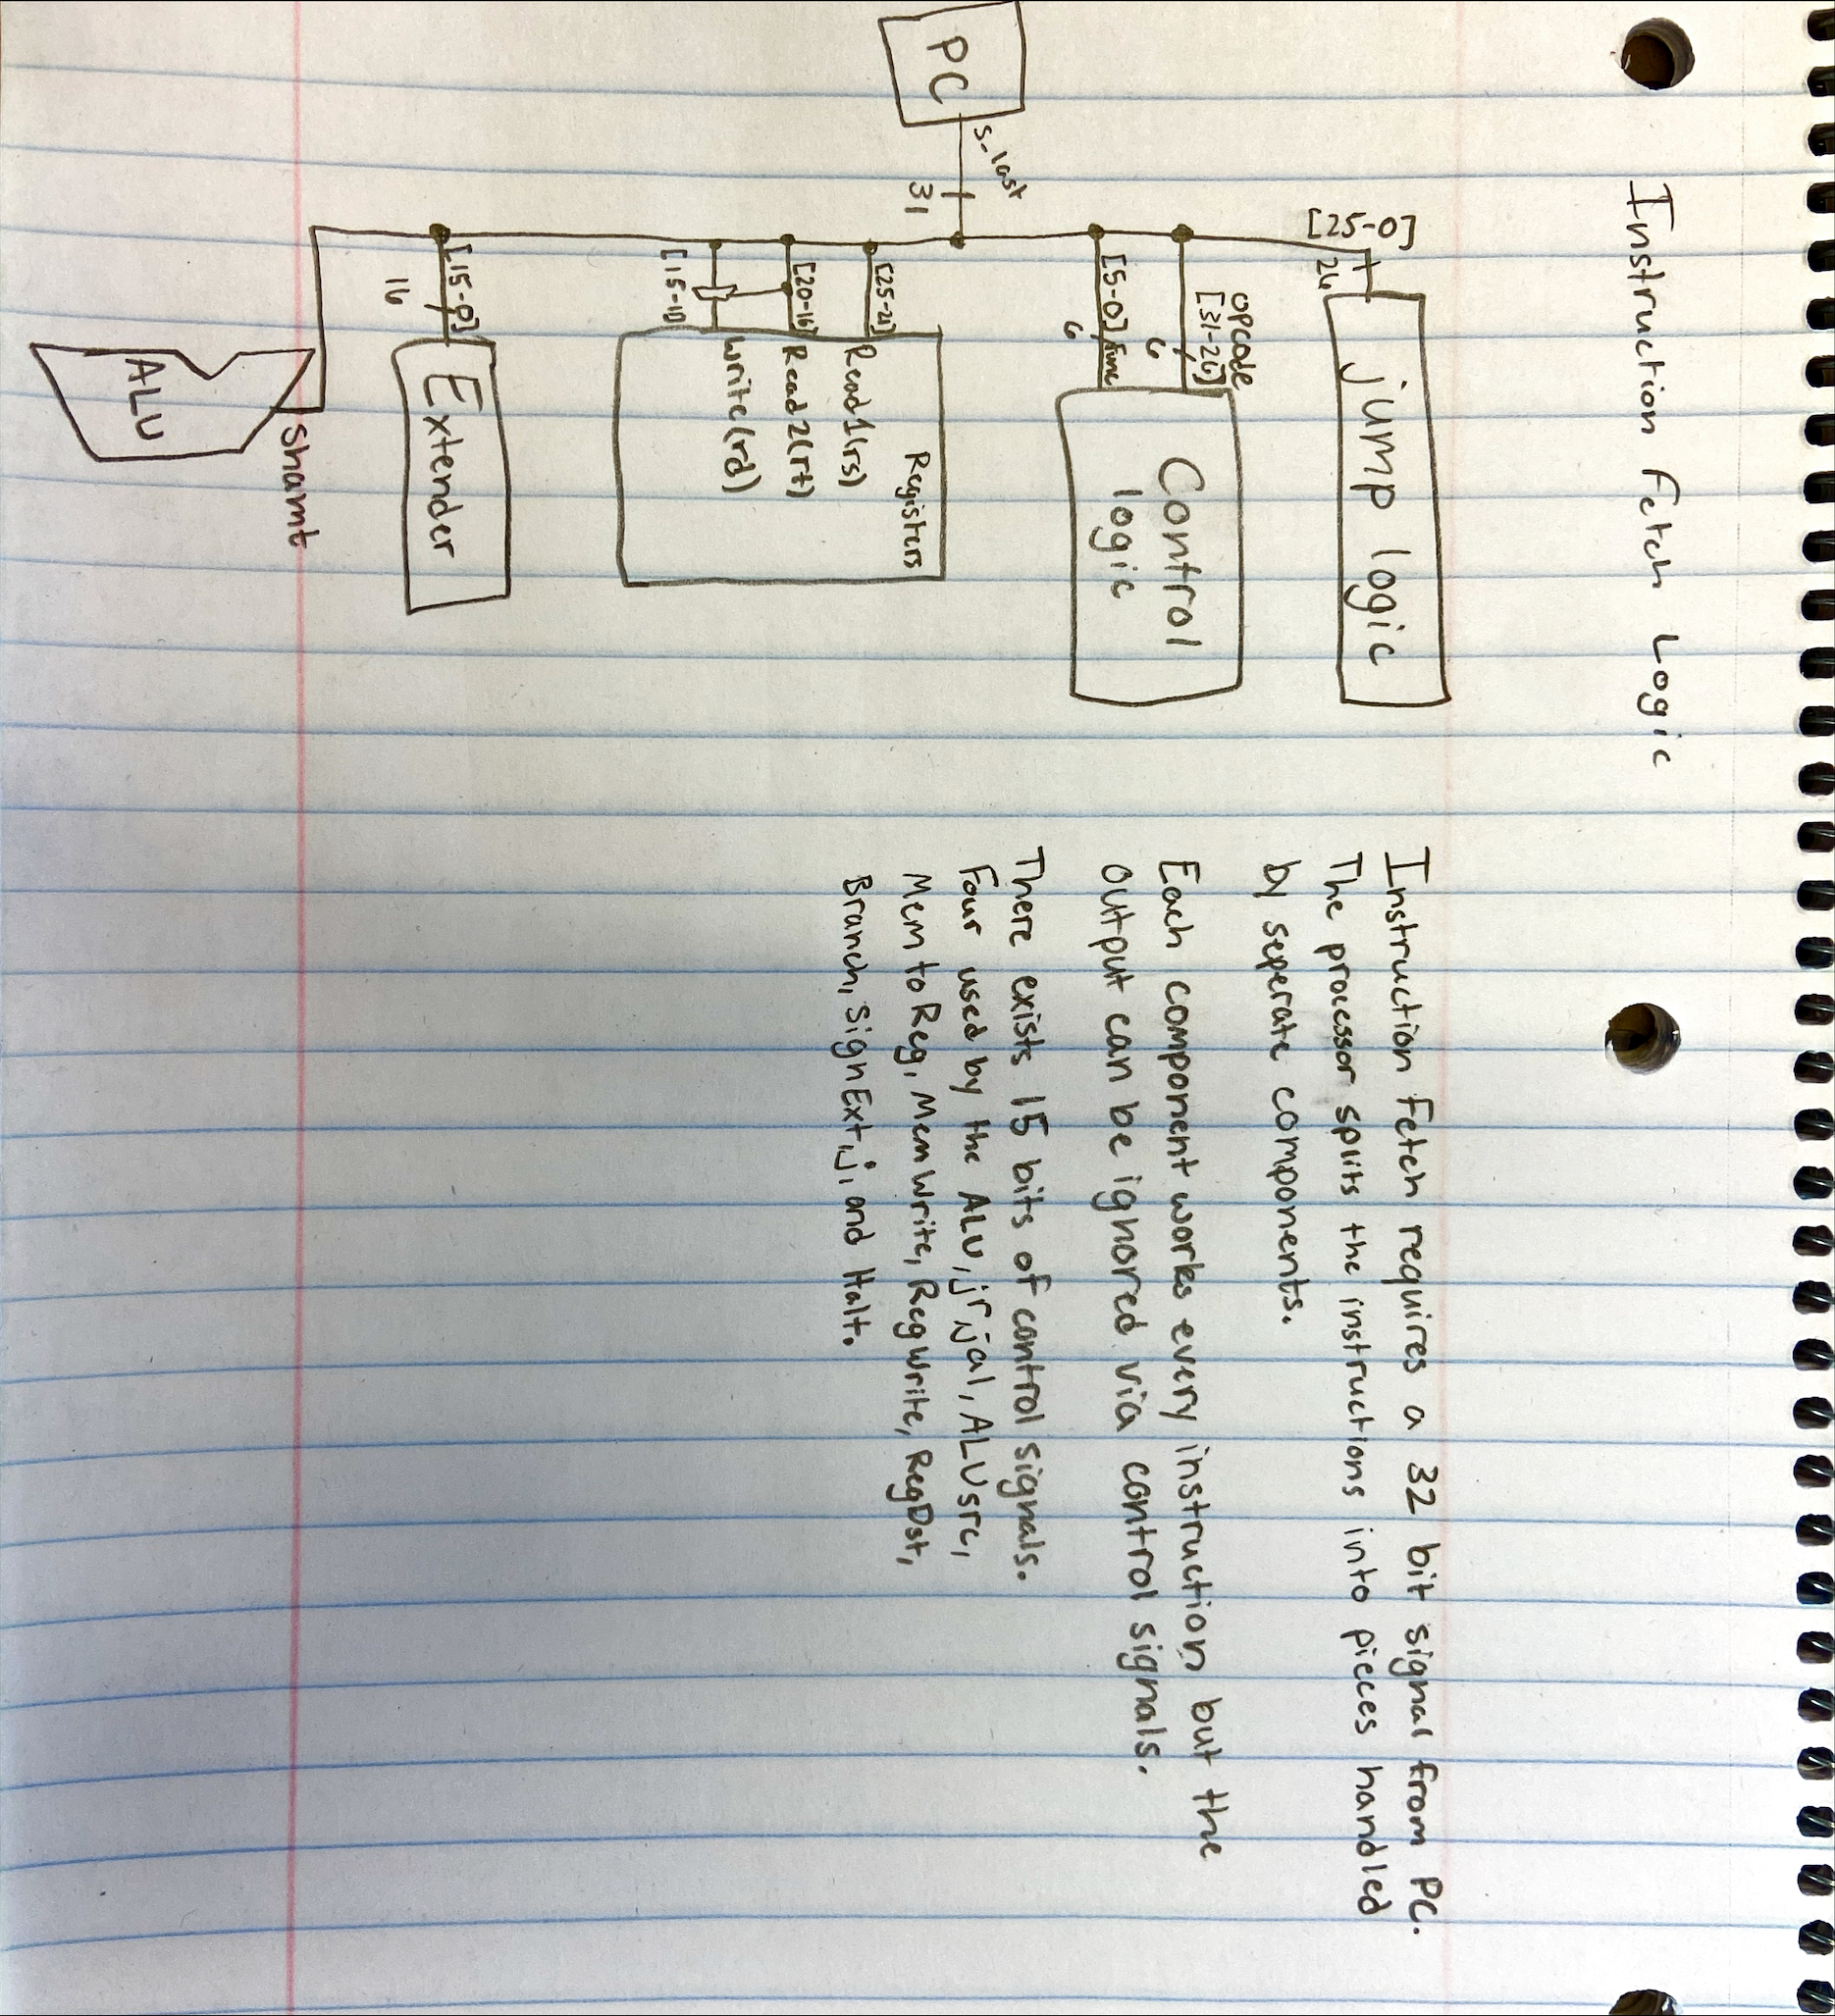 Instruction Fetch Logic
[25-0]
26
jump logic
opcode
[31-26]
6
Control
logic
[5-0] func
6
PC
s_last
31
Registers
[25-21]
Read1(rs)
[20-16]
Read2(rt)
[15-11]
write(rd)
[15-0]
16
Extender
shamt
ALU
Instruction Fetch requires a 32 bit signal from PC.
The processor splits the instructions into pieces handled
by seperate components.
Each component works every instruction but the
output can be ignored via control signals.
There exists 15 bits of control signals.
Four used by the ALU, jr, jal, ALUsrc,
MemtoReg, MemWrite, RegWrite, RegDst,
Branch, SignExt, j, and Halt.